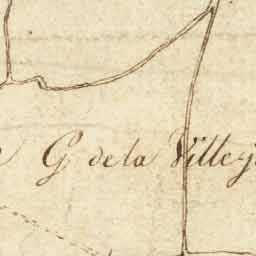 G de la Ville-